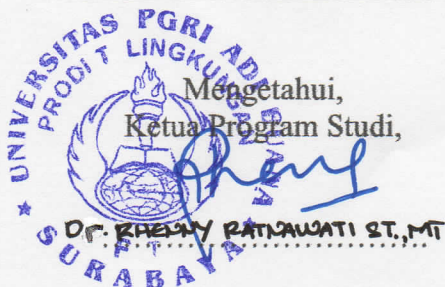 UNIVERSITAS PGRI ADI BUANA
PRODI T LINGKUNGAN
Mengetahui,
Ketua Program Studi,
Dr. RHENNY RATNAWATI ST., MT
SURABAYA